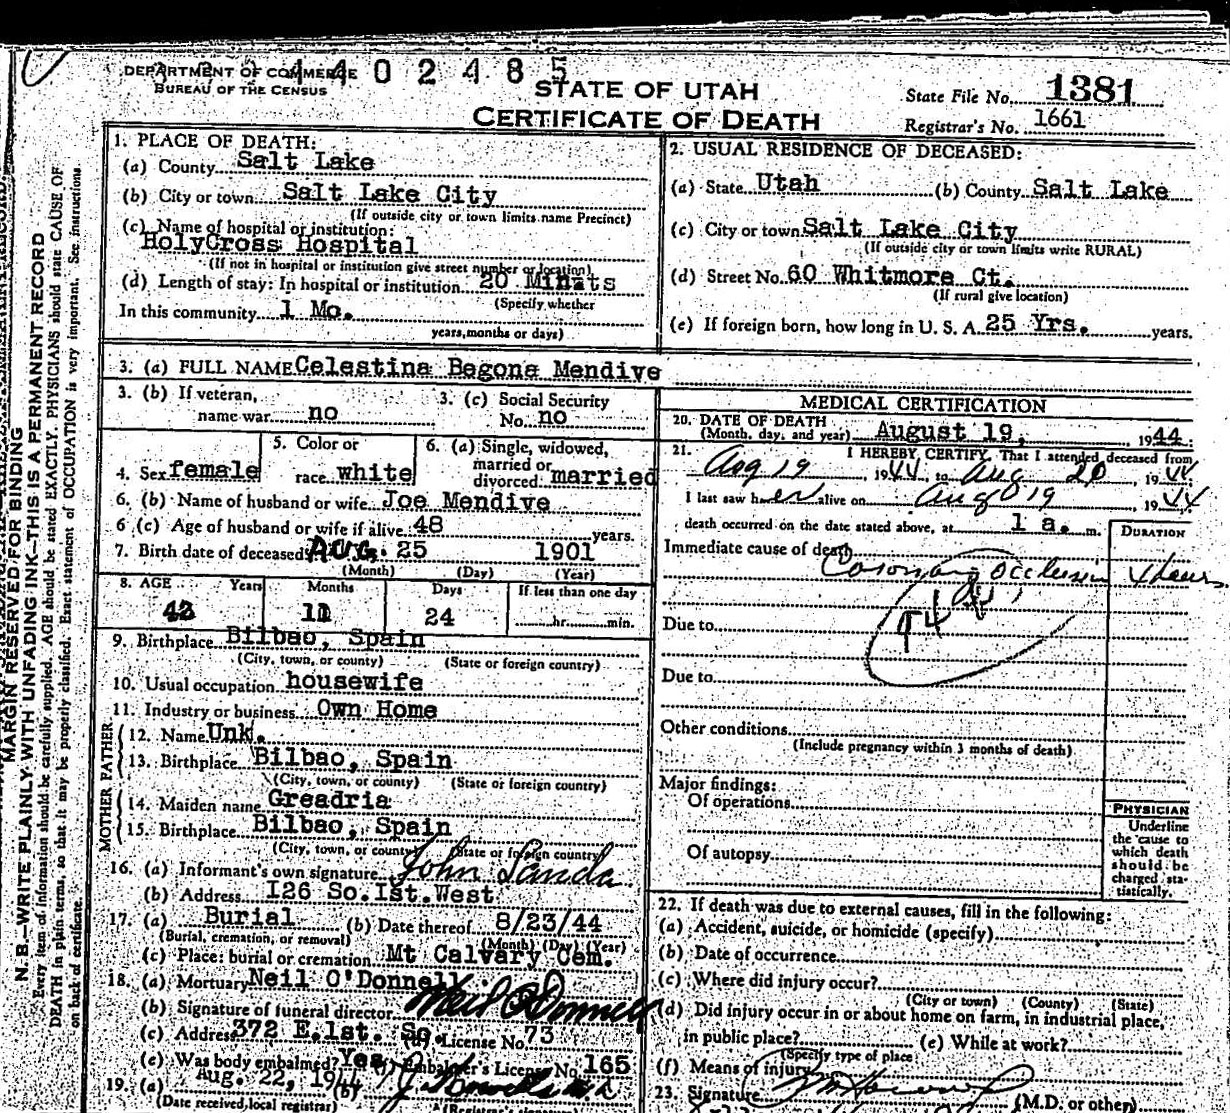 DEPARTMENT OF COMMERCE
BUREAU OF THE CENSUS
4 4 0 2 4 8 5
STATE OF UTAH
CERTIFICATE OF DEATH
State File No. 1381
Registrar's No. 1661
MARGIN RESERVED FOR BINDING
N. B.—WRITE PLAINLY WITH UNFADING INK—THIS IS A PERMANENT RECORD
Every item of information should be carefully supplied. AGE should be stated EXACTLY. PHYSICIANS should state CAUSE OF
DEATH in plain terms, so that it may be properly classified. Exact statement of OCCUPATION is very important. See instructions
on back of certificate.
1. PLACE OF DEATH:
(a) County Salt Lake
(b) City or town Salt Lake City
(If outside city or town limits name Precinct)
(c) Name of hospital or institution:
HolyCross Hospital
(If not in hospital or institution give street number or location)
(d) Length of stay: In hospital or institution 20 Minuts
(Specify whether
In this community 1 Mo.
years, months or days)
2. USUAL RESIDENCE OF DECEASED:
(a) State Utah (b) County Salt Lake
(c) City or town Salt Lake City
(If outside city or town limits write RURAL)
(d) Street No. 60 Whitmore Ct.
(If rural give location)
(e) If foreign born, how long in U. S. A. 25 Yrs. years.
3. (a) FULL NAME Celestina Begona Mendive
3. (b) If veteran,
name war no
3. (c) Social Security
No. no
4. Sex female
5. Color or
race white
6. (a) Single, widowed,
married or
divorced married
6. (b) Name of husband or wife Joe Mendive
6 (c) Age of husband or wife if alive 48 years.
7. Birth date of deceased Aug. 25 1901
(Month) (Day) (Year)
8. AGE Years Months Days If less than one day
42 11 24 hr. min.
9. Birthplace Bilbao, Spain
(City, town, or county) (State or foreign country)
10. Usual occupation housewife
11. Industry or business Own Home
FATHER
12. Name Unk.
13. Birthplace Bilbao, Spain
(City, town, or county) (State or foreign country)
MOTHER
14. Maiden name Greadria
15. Birthplace Bilbao, Spain
(City, town, or county) (State or foreign country)
16. (a) Informant's own signature John Landa
(b) Address I26 So. Ist. West
17. (a) Burial (b) Date thereof 8/23/44
(Burial, cremation, or removal) (Month) (Day) (Year)
(c) Place: burial or cremation Mt Calvary Cem.
18. (a) Mortuary Neil O'Donnell
(b) Signature of funeral director Neil O'Donnell
(c) Address 372 E.1st. So. License No. 73
(e) Was body embalmed? Yes (f) Embalmer's License No. 165
19. (a) Aug. 22, 1944 (b)
(Date received local registrar) (Registrar's signature)
MEDICAL CERTIFICATION
20. DATE OF DEATH
(Month, day, and year) August 19, 1944
21. I HEREBY CERTIFY, That I attended deceased from
Aug 19 1944 to Aug 20 1944
I last saw her alive on Aug 19 1944
death occurred on the date stated above, at 1 a. m.
DURATION
Immediate cause of death
Coronary Occlusion 4 hours
94a
Due to
Due to
Other conditions
(Include pregnancy within 3 months of death)
Major findings:
Of operations
Of autopsy
PHYSICIAN
Underline
the cause to
which death
should be
charged sta-
tistically.
22. If death was due to external causes, fill in the following:
(a) Accident, suicide, or homicide (specify)
(b) Date of occurrence
(c) Where did injury occur?
(City or town) (County) (State)
(d) Did injury occur in or about home on farm, in industrial place,
in public place? (e) While at work?
(Specify type of place)
(f) Means of injury
23. Signature (M.D. or other)